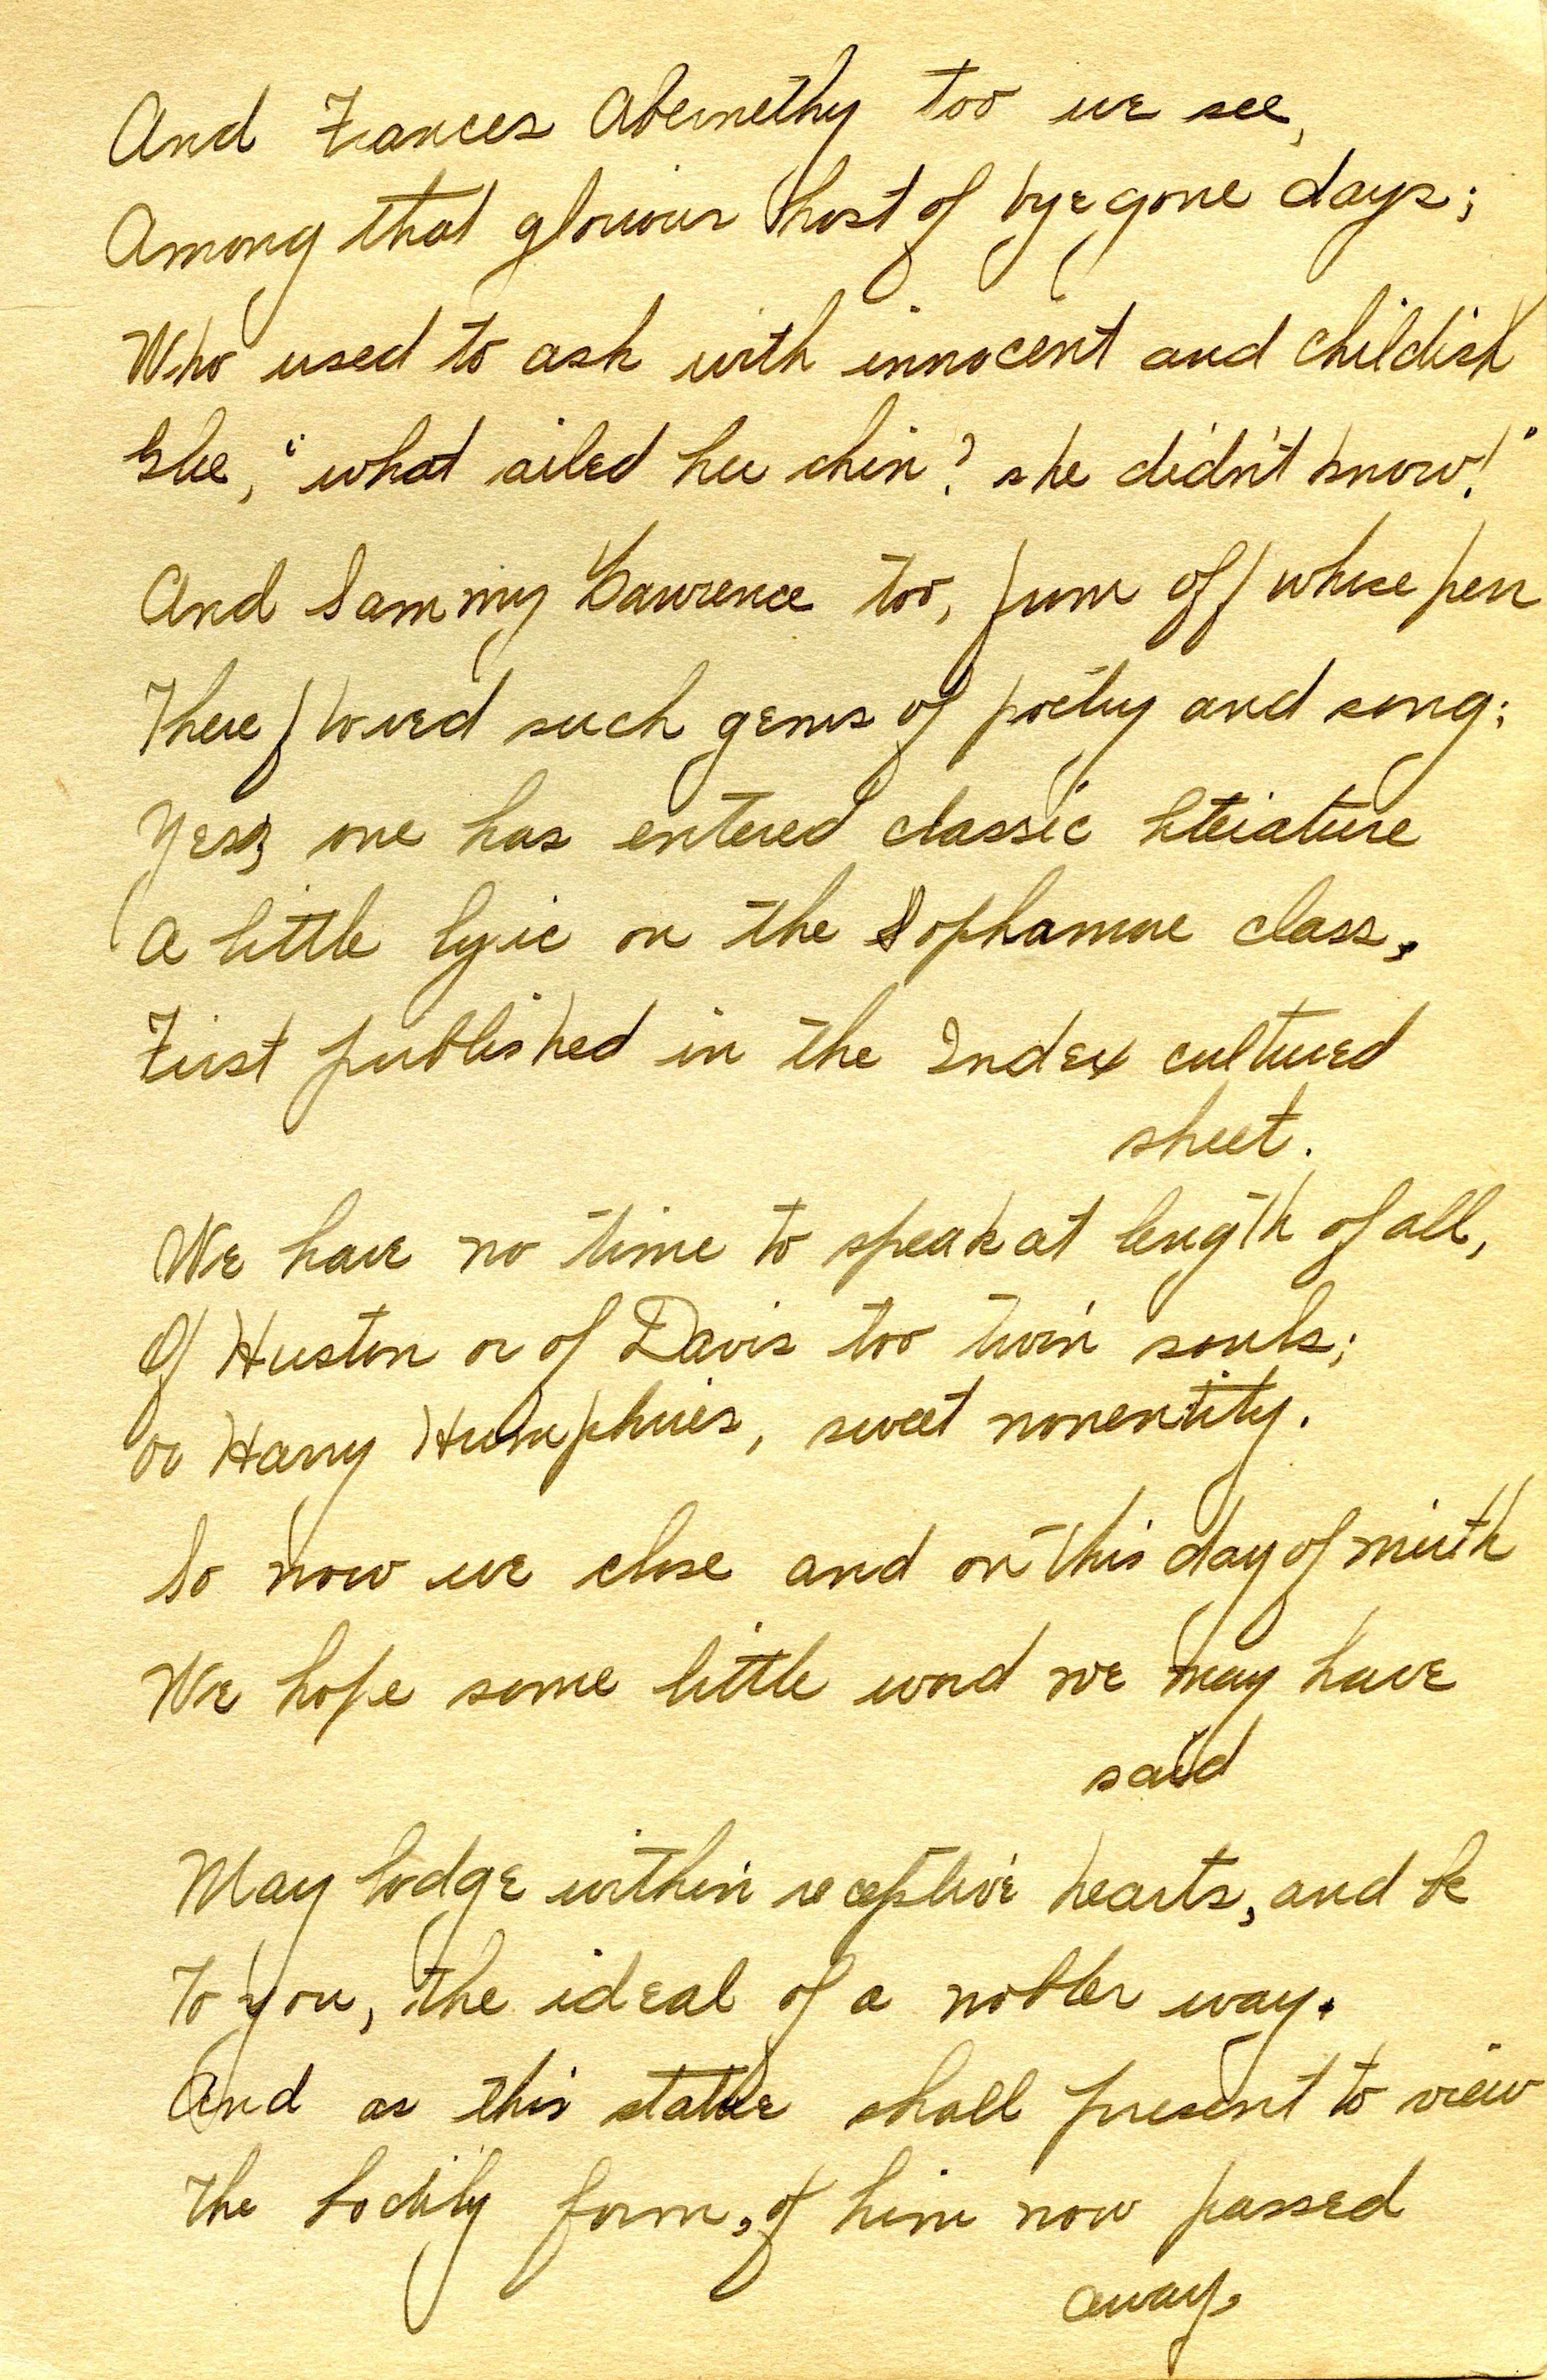 And Frances Abernethy too we see,
Among that glorious host of bye gone days;
Who used to ask with innocent and childish
Glee, "what ailed her chin? she didn't know!"
And Sammy Lawrence too, from off whose pen
There flowed such gems of poetry and song;
Yes, one has entered classic literature
A little lyric on the Sophamore class,
First published in the Index cultured
sheet.
We have no time to speak at length of all,
Of Huston or of Davis too twin souls;
Or Harry Humphries, sweet nonentity.
So now we close and on this day of mirth
We hope some little word we may have
said
May lodge within receptive hearts, and be
To you, the ideal of a nobler way.
And as this statue shall present to view
The bodily form, of him now passed
away,